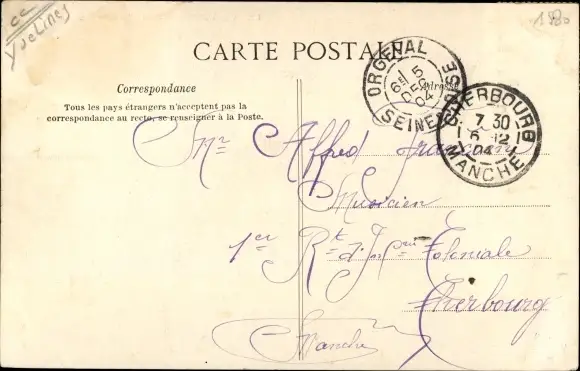 cc
Yvelines
1980
CARTE POSTALE
Correspondance
Adresse
Tous les pays étrangers n'acceptent pas la
correspondance au recto, se renseigner à la Poste.
ORGEVAL
6E 5
DEC
04
SEINE OISE
CHERBOURG
7 30
6 12
04
MANCHE
Mr Alfred
Musicien
1er Rt d'Inf rie Coloniale
Cherbourg
Manche